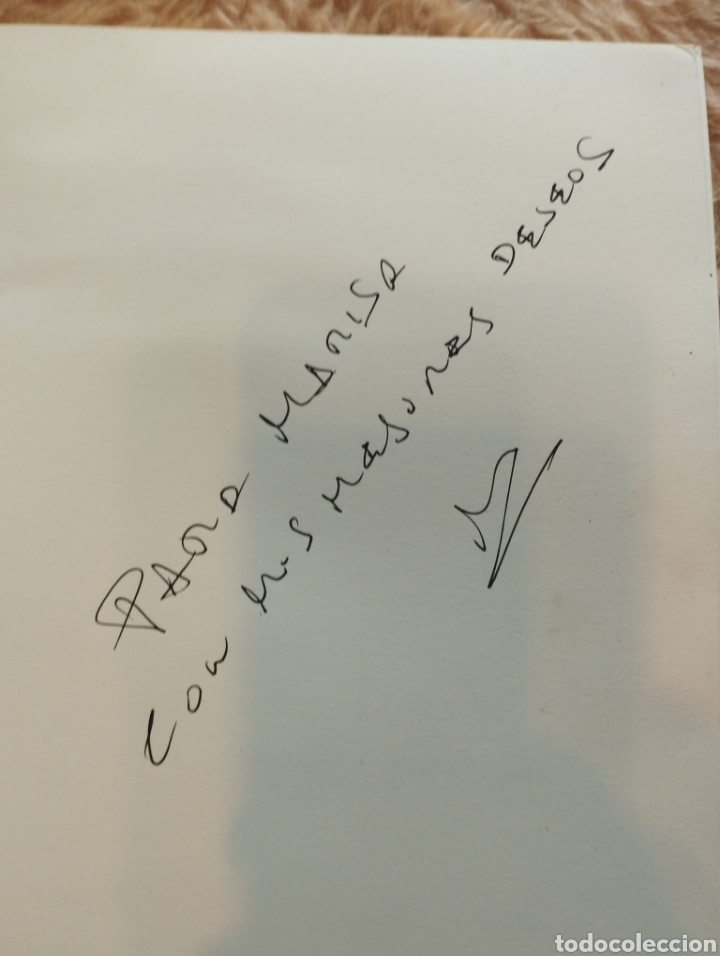 PARA MARISA
CON MIS MEJORES DESEOS
todocoleccion